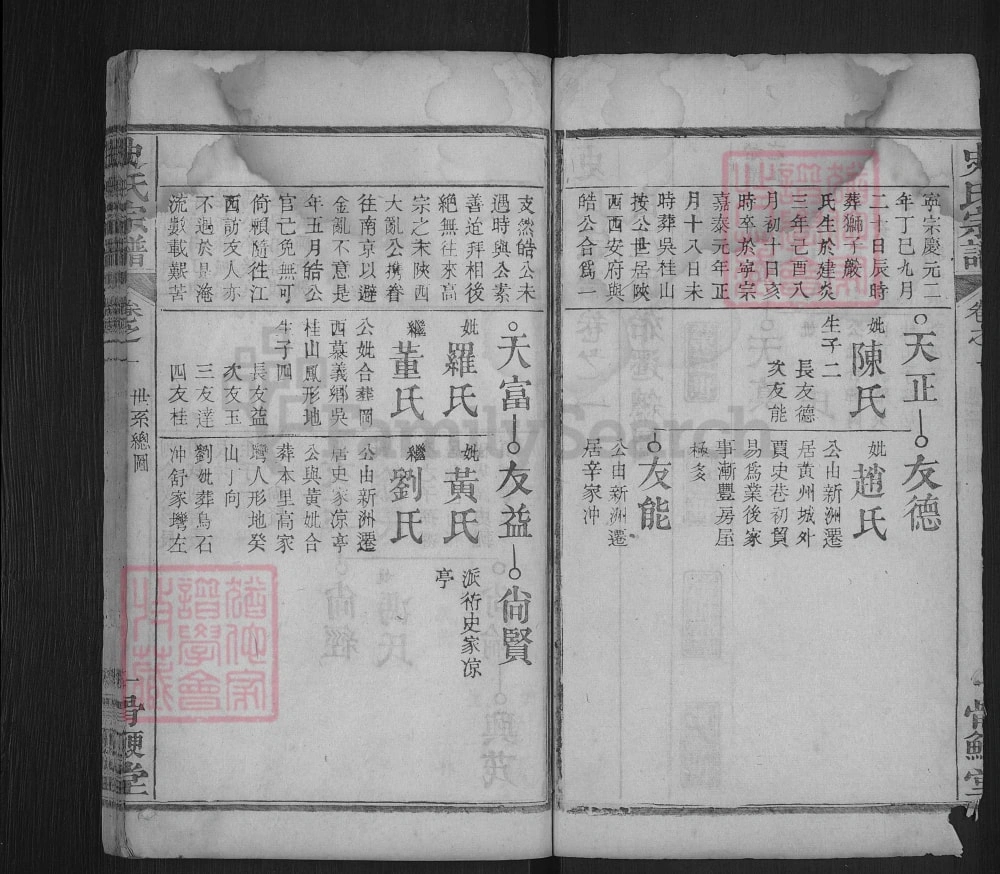 史氏宗譜
卷之一
骨鯁堂
寧宗慶元二
年丁巳九月
二十日辰時
葬獅子嚴
氏生於建炎
三年己酉八
月初十日亥
時卒於寧宗
嘉泰元年正
月十八日未
時葬吳桂山
按公世居陝
西西安府與
皓公合爲一
天正
妣陳氏
生子二
長友德
次友能
友德
妣趙氏
公由新洲遷
居黄州城外
賈史巷初貿
易爲業後家
事漸豐房屋
極多
友能
公由新洲遷
居辛家冲
支然皓公未
遇時與公素
善迨拜相後
絕無往來高
宗之末陝西
大亂公攜眷
往南京以避
金亂不意是
年五月皓公
官已免無可
倚賴隨往江
西訪友人亦
不遇於是淹
流數載艱苦
天富
妣羅氏
繼董氏
公妣合葬岡
西慕義鄉吳
桂山鳳形地
生子四
長友益
次友玉
三友達
四友桂
友益
妣黃氏
繼劉氏
公由新洲遷
居史家凉亭
公與黃妣合
葬本里高家
塆人形地癸
山丁向
劉妣葬烏石
冲舒家塆左
尙賢
派衍史家凉
亭
史氏宗譜
卷之一
世系總圖
一
骨鯁堂
FamilySearch